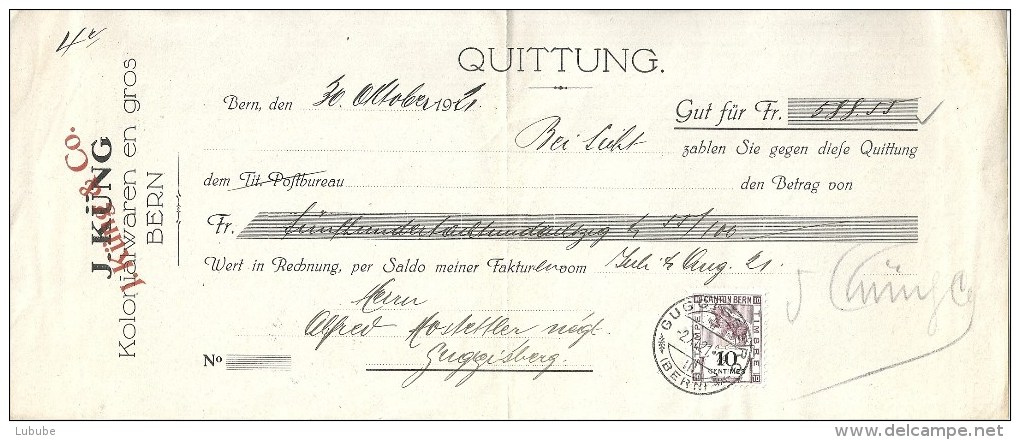 4
QUITTUNG.
Bern, den 30. Oktober 1921.
Gut für Fr. 588.55
Bei Sicht zahlen Sie gegen diese Quittung
dem Tit. Postbureau den Betrag von
Fr. fünfhundertachtundachtzig & 55/100
Wert in Rechnung, per Saldo meiner Fakturen vom Juli & Aug. 21.
Herrn
Alfred Hostettler negt.
Guggisberg.
No
J. KÜNG
J. Küng & Co.
Kolonialwaren en gros
BERN
J Küng & Co
CANTON BERN
TIMBRE
10
CENTIMES
GUGGISBERG
(BERN)
Lubube
www.delcampe.net